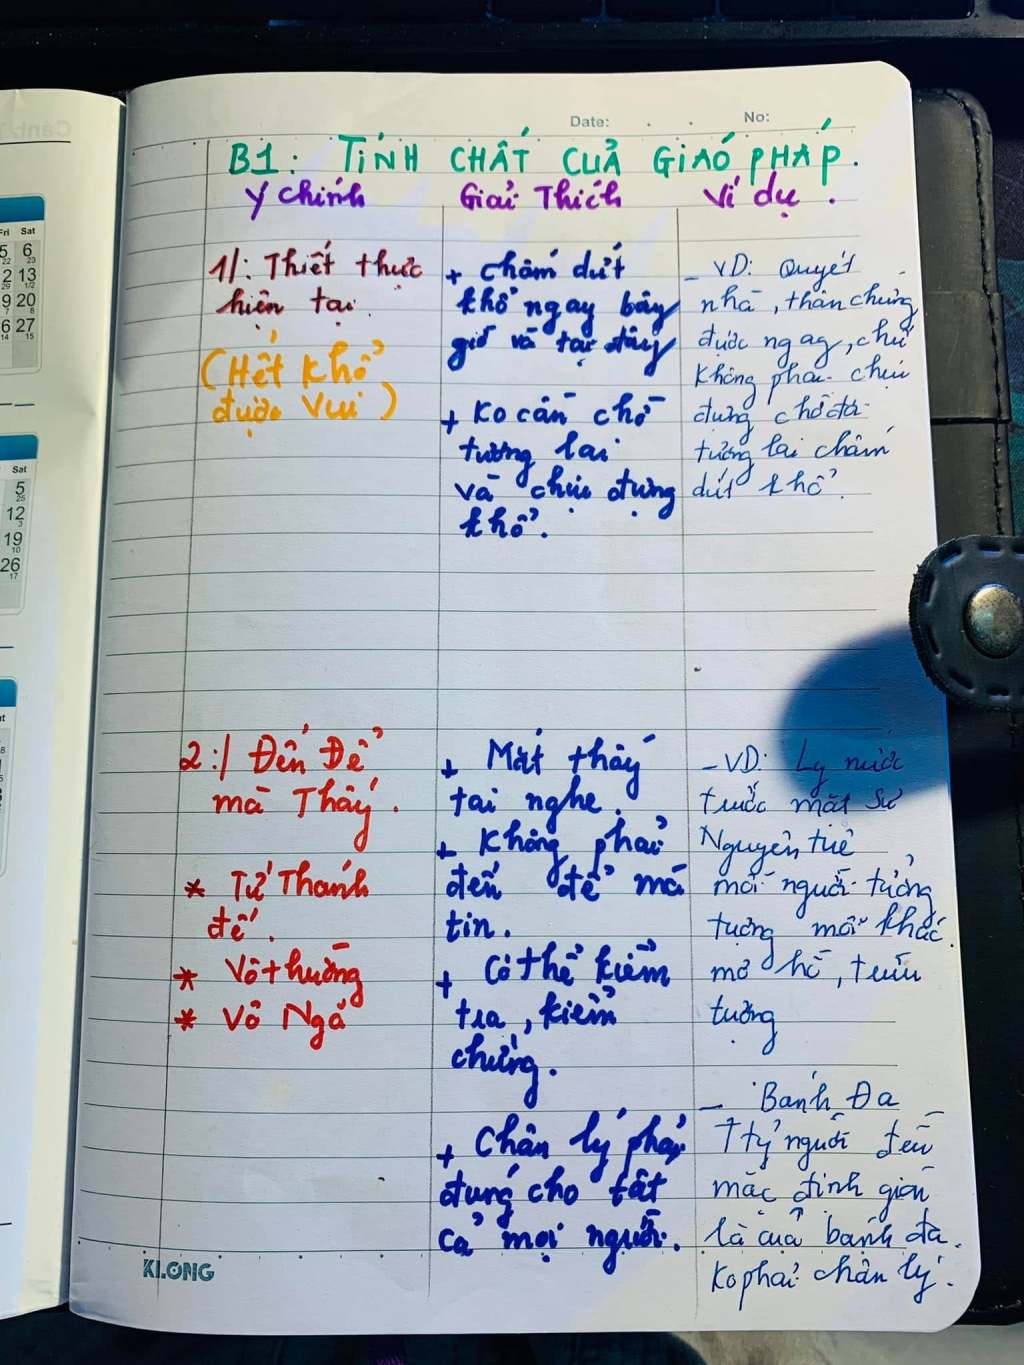 Date: . . No:
B1: TÍNH CHẤT CỦA GIÁO PHÁP.
Ý chính
Giải Thích
Ví dụ.
1/: Thiết thực
hiện tại.
(Hết khổ
được vui)
+ chấm dứt
khổ ngay bây
giờ và tại đây
+ Ko cần chờ
tương lai
và chịu đựng
khổ.
- VD: Quyết
nhà, thân chứng
được ngay, chứ
không phải chịu
đựng chờ đợi
tương lai chấm
dứt khổ.
2:/ Đến Để
mà Thấy.
* Tứ Thánh
đế.
* Vô thường
* Vô Ngã
+ Mắt thấy
tai nghe.
+ Không phải
đến để mà
tin.
+ Có thể kiểm
tra, kiểm
chứng.
+ Chân lý phải
đúng cho tất
cả mọi người.
- VD: Ly nước
trước mặt Sư
Nguyên Tuệ
mỗi người tưởng
tượng mỗi khác.
mơ hồ, tưởng
tượng
- Bánh Đa
7 tỷ người đều
mặc định giòn
là của bánh đa.
Ko phải chân lý.
KLONG
Fri Sat
5 6
13
9 20
6 27
Sat
5
12
19
26